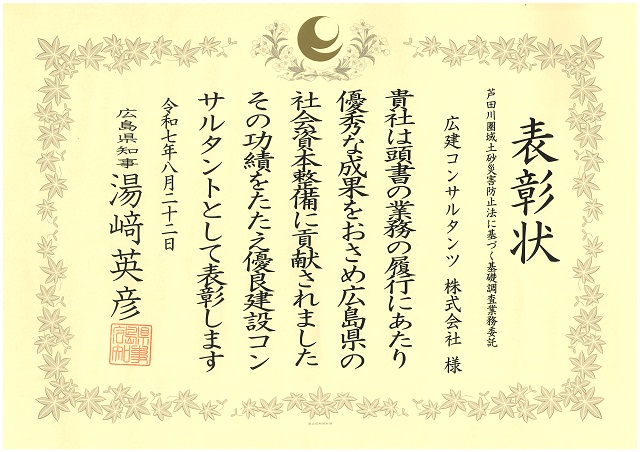 表彰状
芦田川圏域土砂災害防止法に基づく基礎調査業務委託
広建コンサルタンツ 株式会社 様
貴社は頭書の業務の履行にあたり
優秀な成果をおさめ広島県の
社会資本整備に貢献されました
その功績をたたえ優良建設コン
サルタントとして表彰します
令和七年八月二十二日
広島県知事 湯﨑英彦